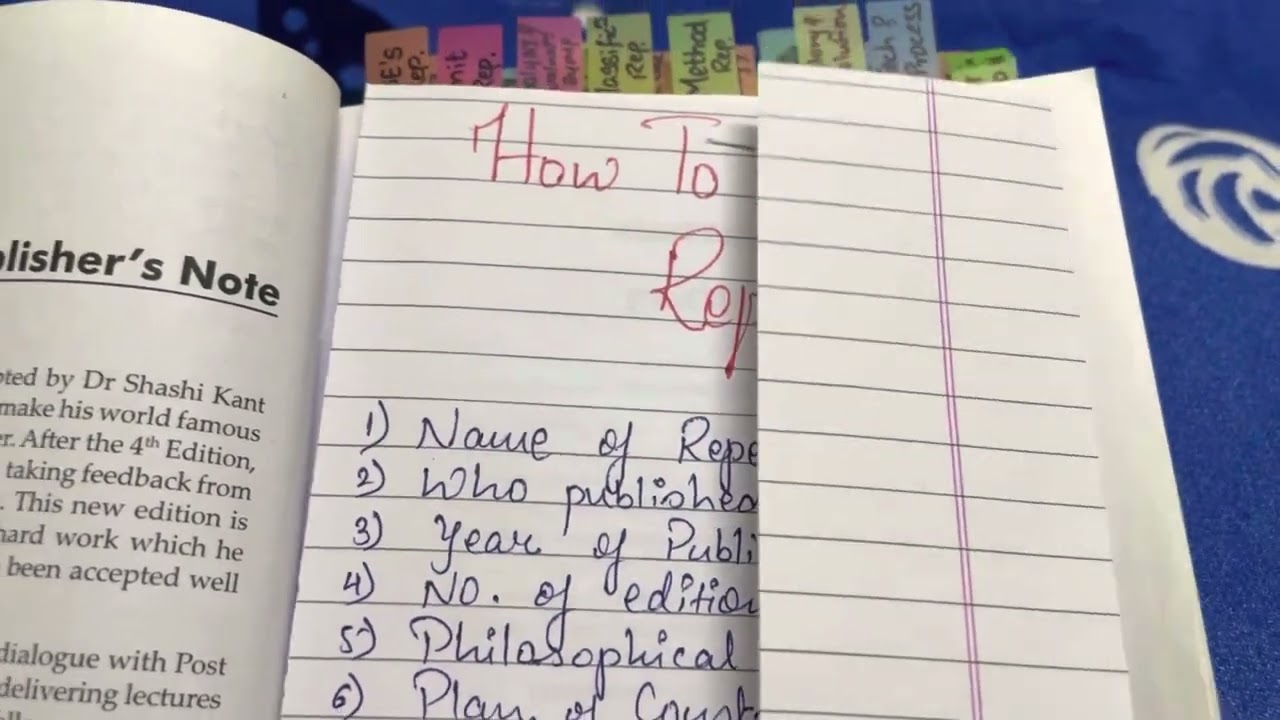 Rep.
Unit
Rep.
Rep.
Method
Rep.
Process
How To
Rep
Publisher's Note
1) Name of Repe
2) Who published
3) Year of Publi
4) NO. of edition
5) Philosophical
6) Plan of Const
oted by Dr Shashi Kant
make his world famous
er. After the 4th Edition,
taking feedback from
. This new edition is
hard work which he
been accepted well
dialogue with Post
delivering lectures